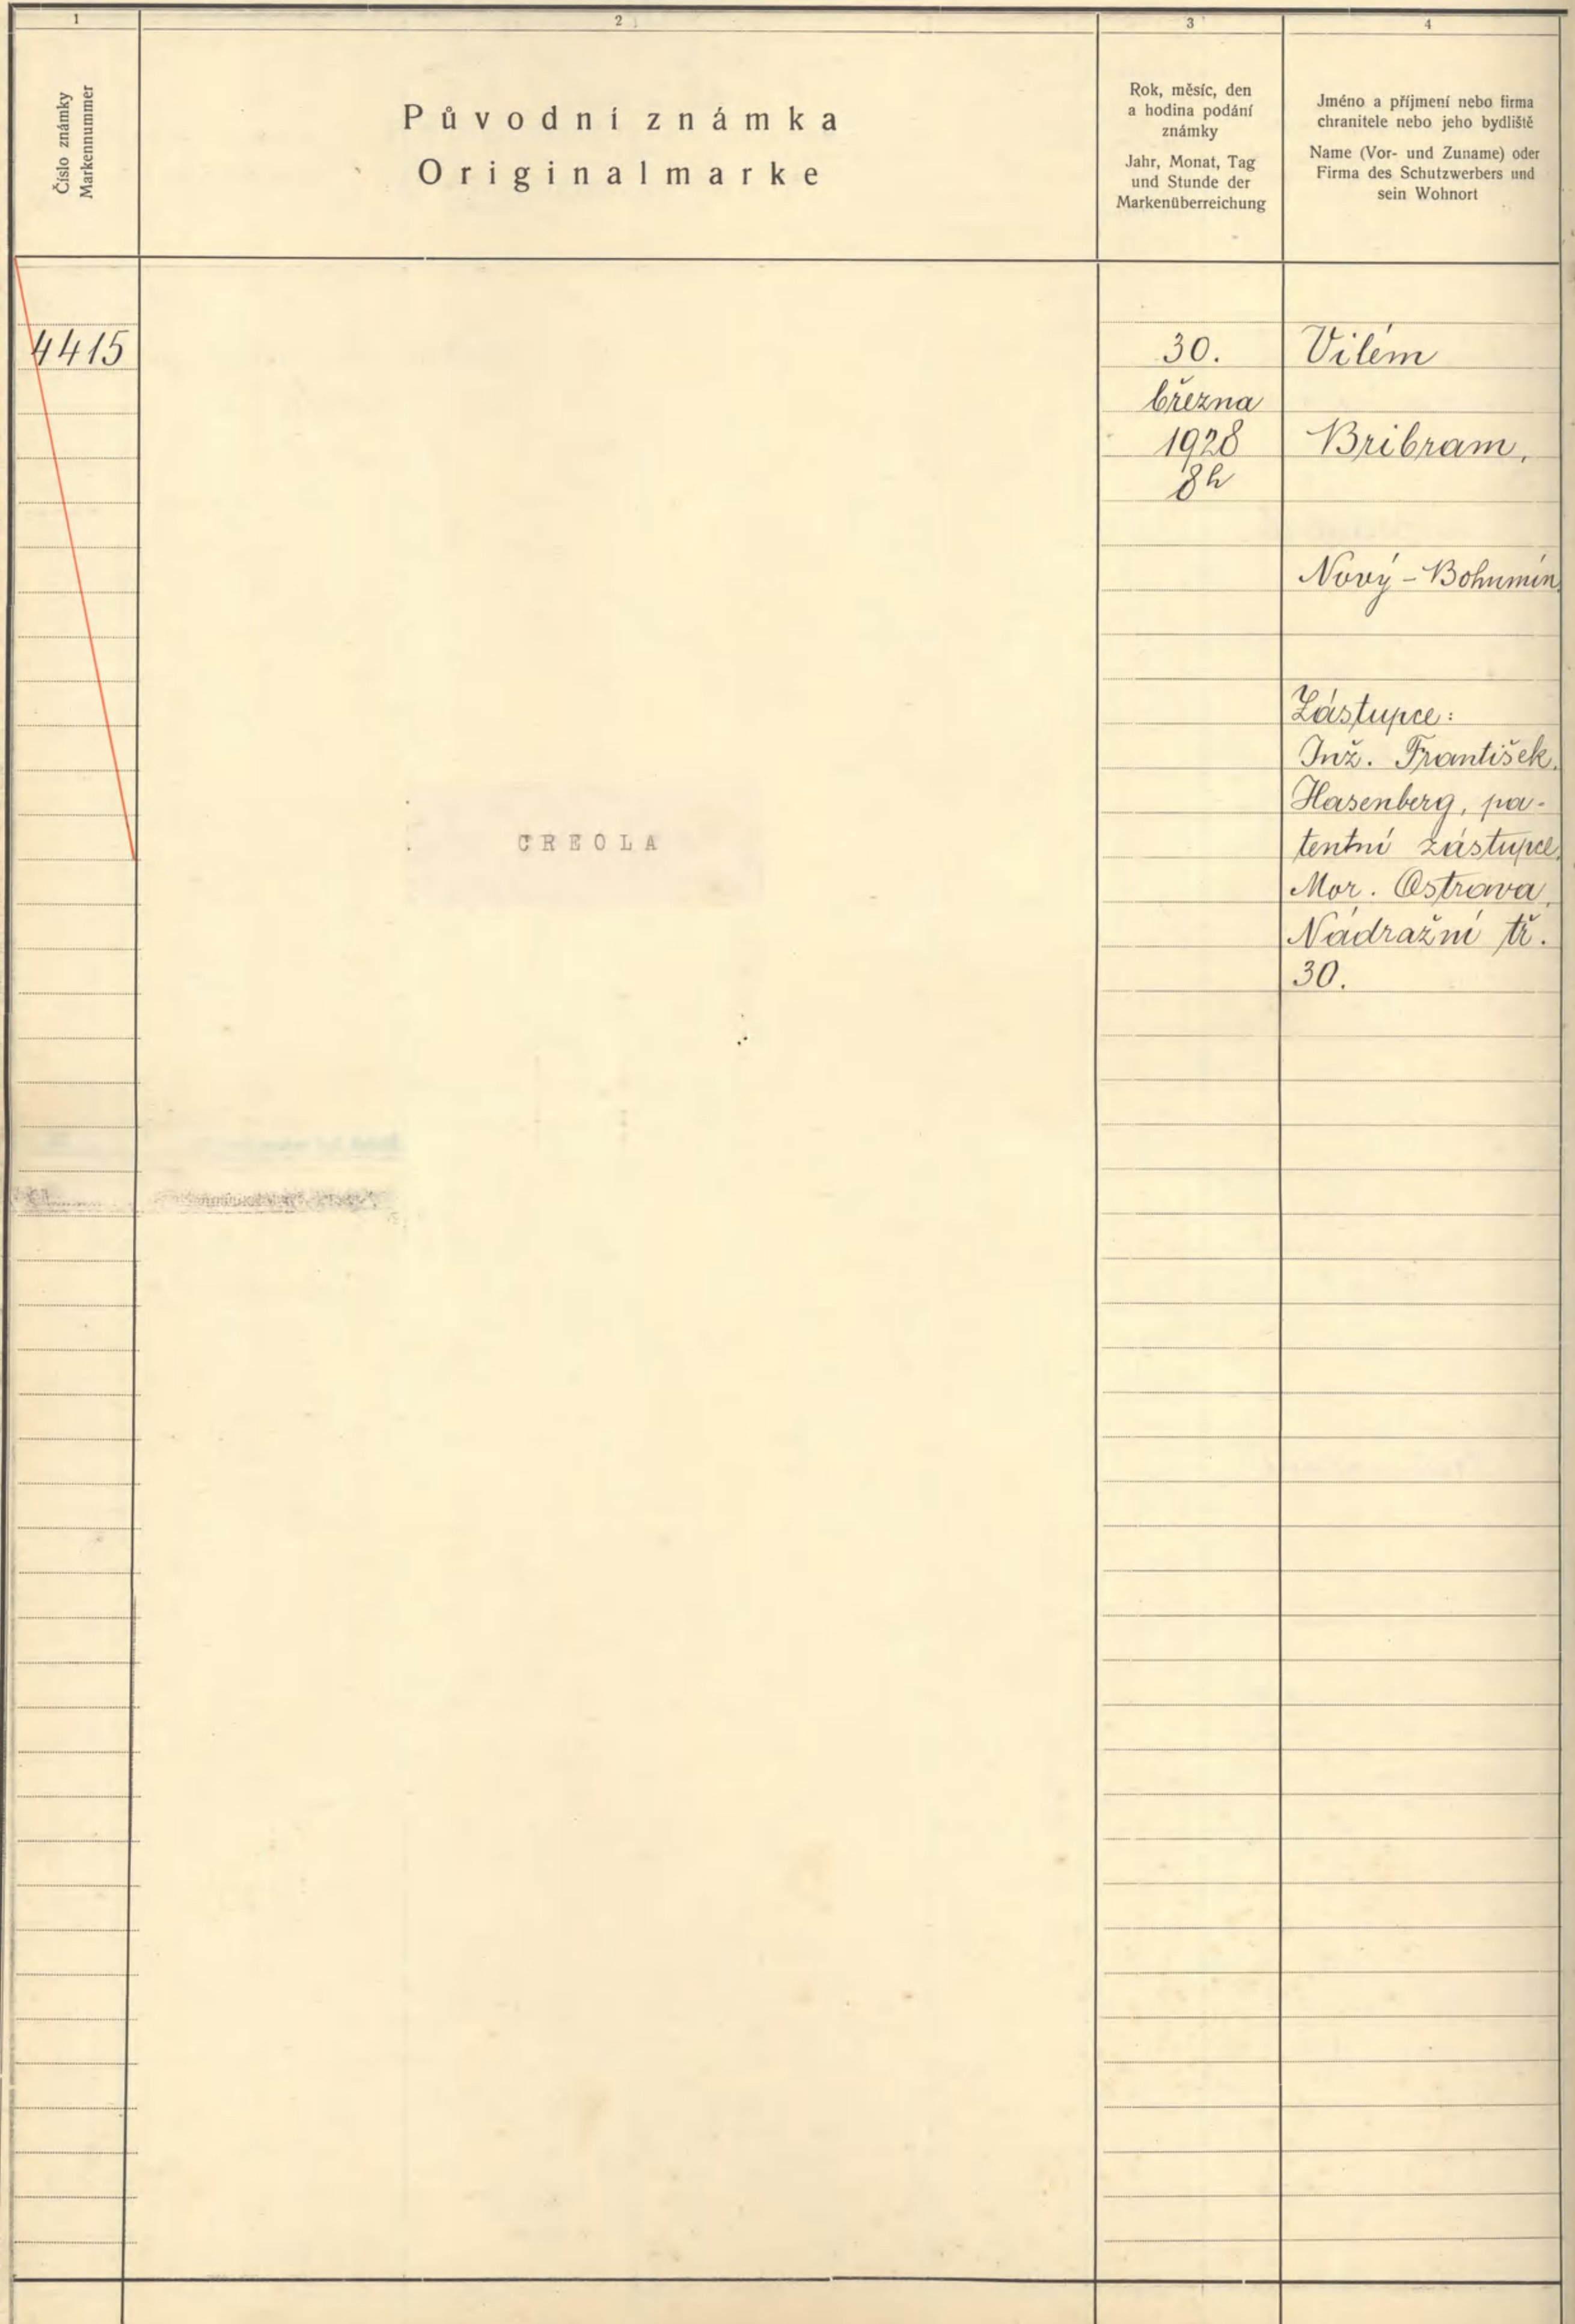 1
2
3
4
Číslo známky
Markennummer
Původní známka
Originalmarke
Rok, měsíc, den
a hodina podání
známky
Jahr, Monat, Tag
und Stunde der
Markenüberreichung
Jméno a příjmení nebo firma
chranitele nebo jeho bydliště
Name (Vor- und Zuname) oder
Firma des Schutzwerbers und
sein Wohnort
4415
CREOLA
30.
března
1928
8h
Vilém
Bribram,
Nový-Bohumín
Zástupce:
Inž. František
Hasenberg, pa-
tentní zástupce,
Mor. Ostrava,
Nádražní tř.
30.